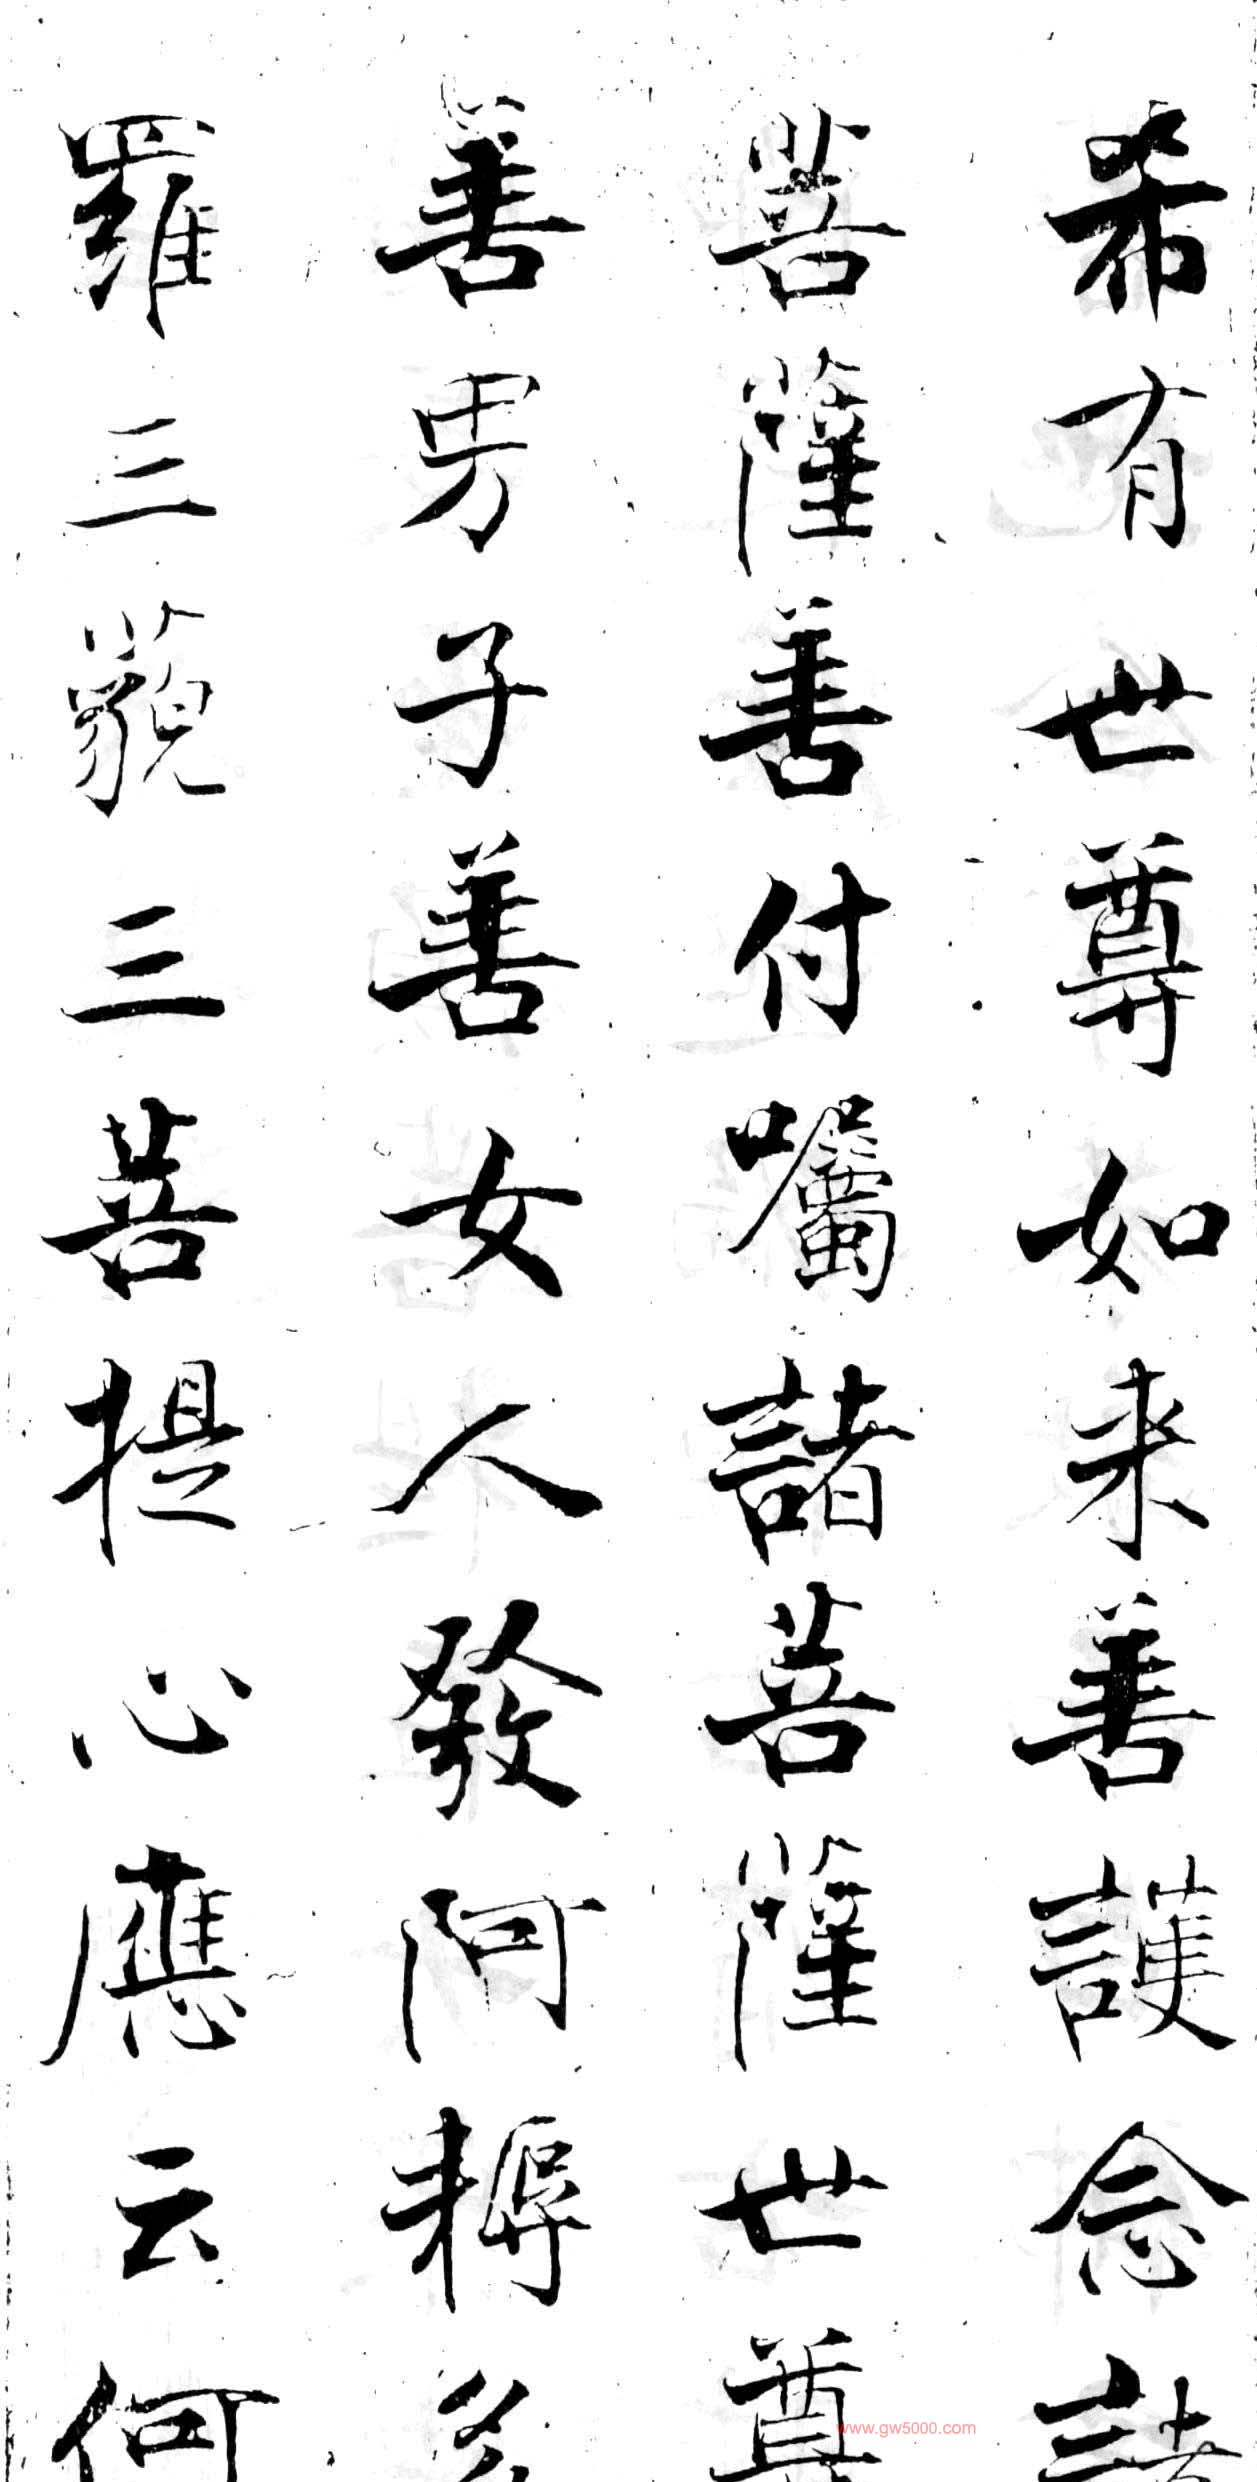 希有世尊如来善護念諸
菩薩善付囑諸菩薩世尊
善男子善女人發阿耨多
羅三藐三菩提心應云何
www.gw5000.com